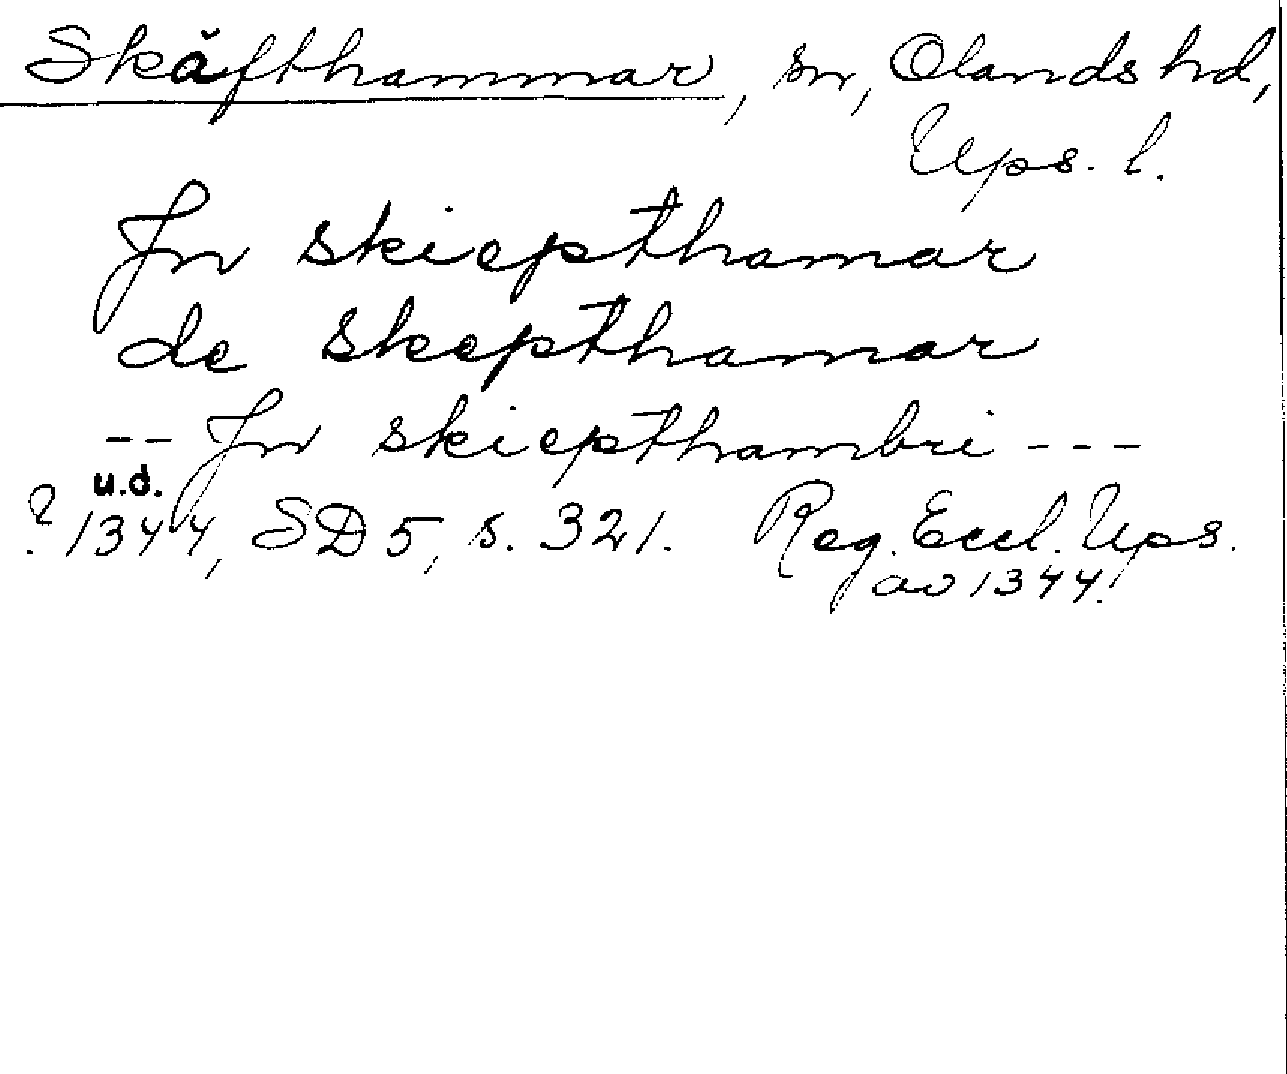 Skäfthammar, sn, Olands hd,
Ups. l.
Jn skiepthamar
de skepthamar
-- Jn skiepthambri ---
u.d.
? 1344, SD 5, s. 321. Reg. Eccl. Ups.
av 1344.